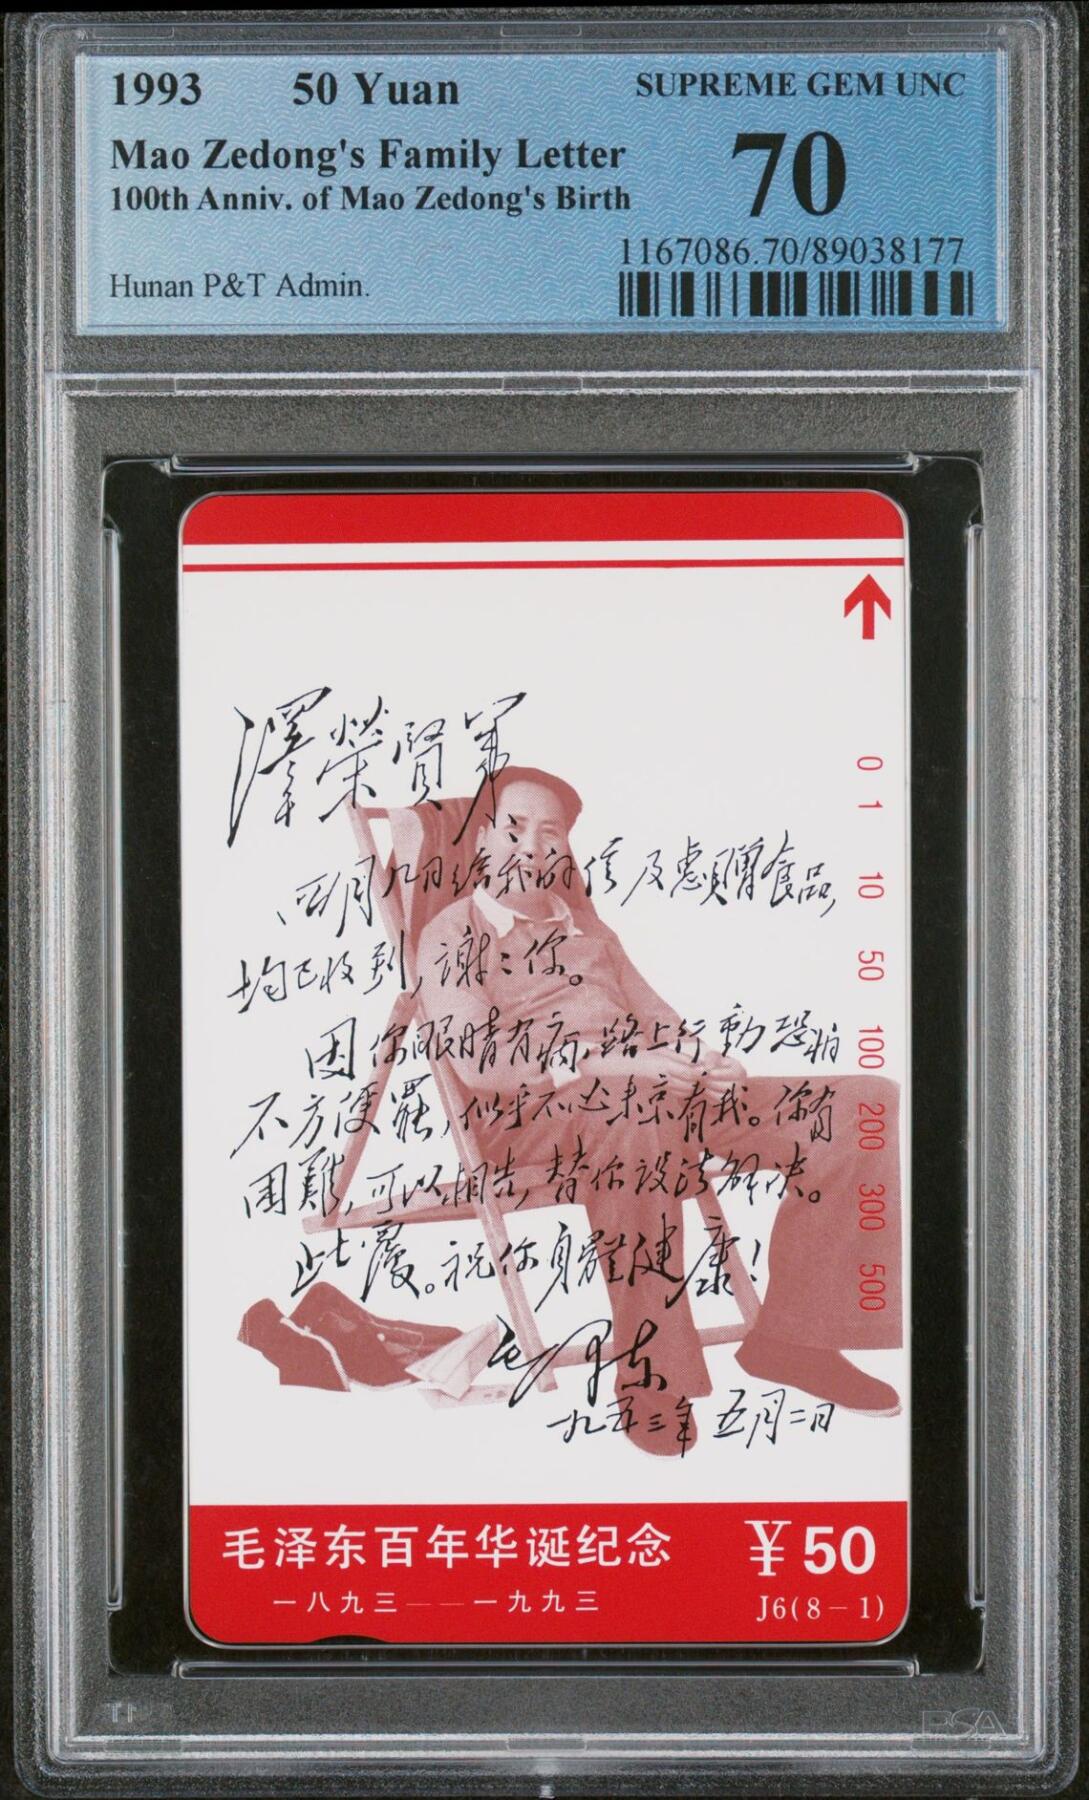 1993 50 Yuan SUPREME GEM UNC
Mao Zedong's Family Letter 70
100th Anniv. of Mao Zedong's Birth
1167086.70/89038177
Hunan P&T Admin.
澤榮賢弟：
四月八日給我的信及惠贈食品，
均已收到，謝謝你。
因你眼睛有病，路上行動恐怕
不方便罷，似乎不必来京看我。你有
困難，可以相告，替你設法解决。
此覆。祝你身體健康！
毛泽东
一九五三年五月二日
0
1
10
50
100
200
300
500
毛泽东百年华诞纪念 ¥50
一八九三——一九九三 J6(8-1)
PSA